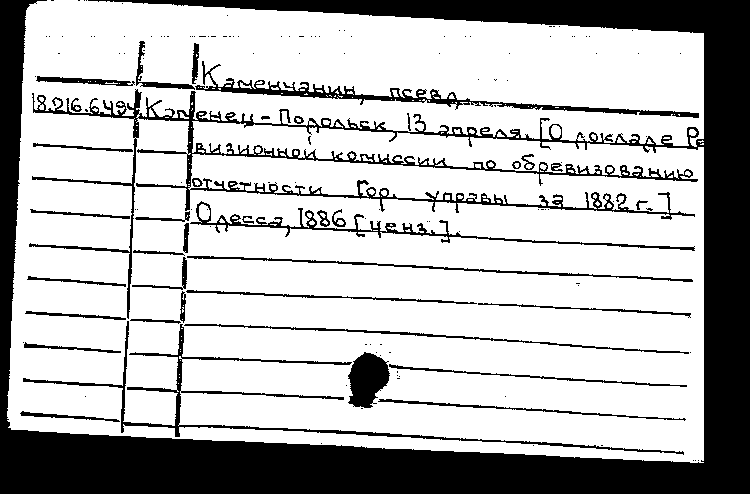 Каменчанин, псевд.
18.216.6.494. Каменец-Подольск, 13 апреля. [О докладе Ре
визионной комиссии по обревизованию
отчетности Гор. управы за 1882 г.].
Одесса, 1886 [ценз.].